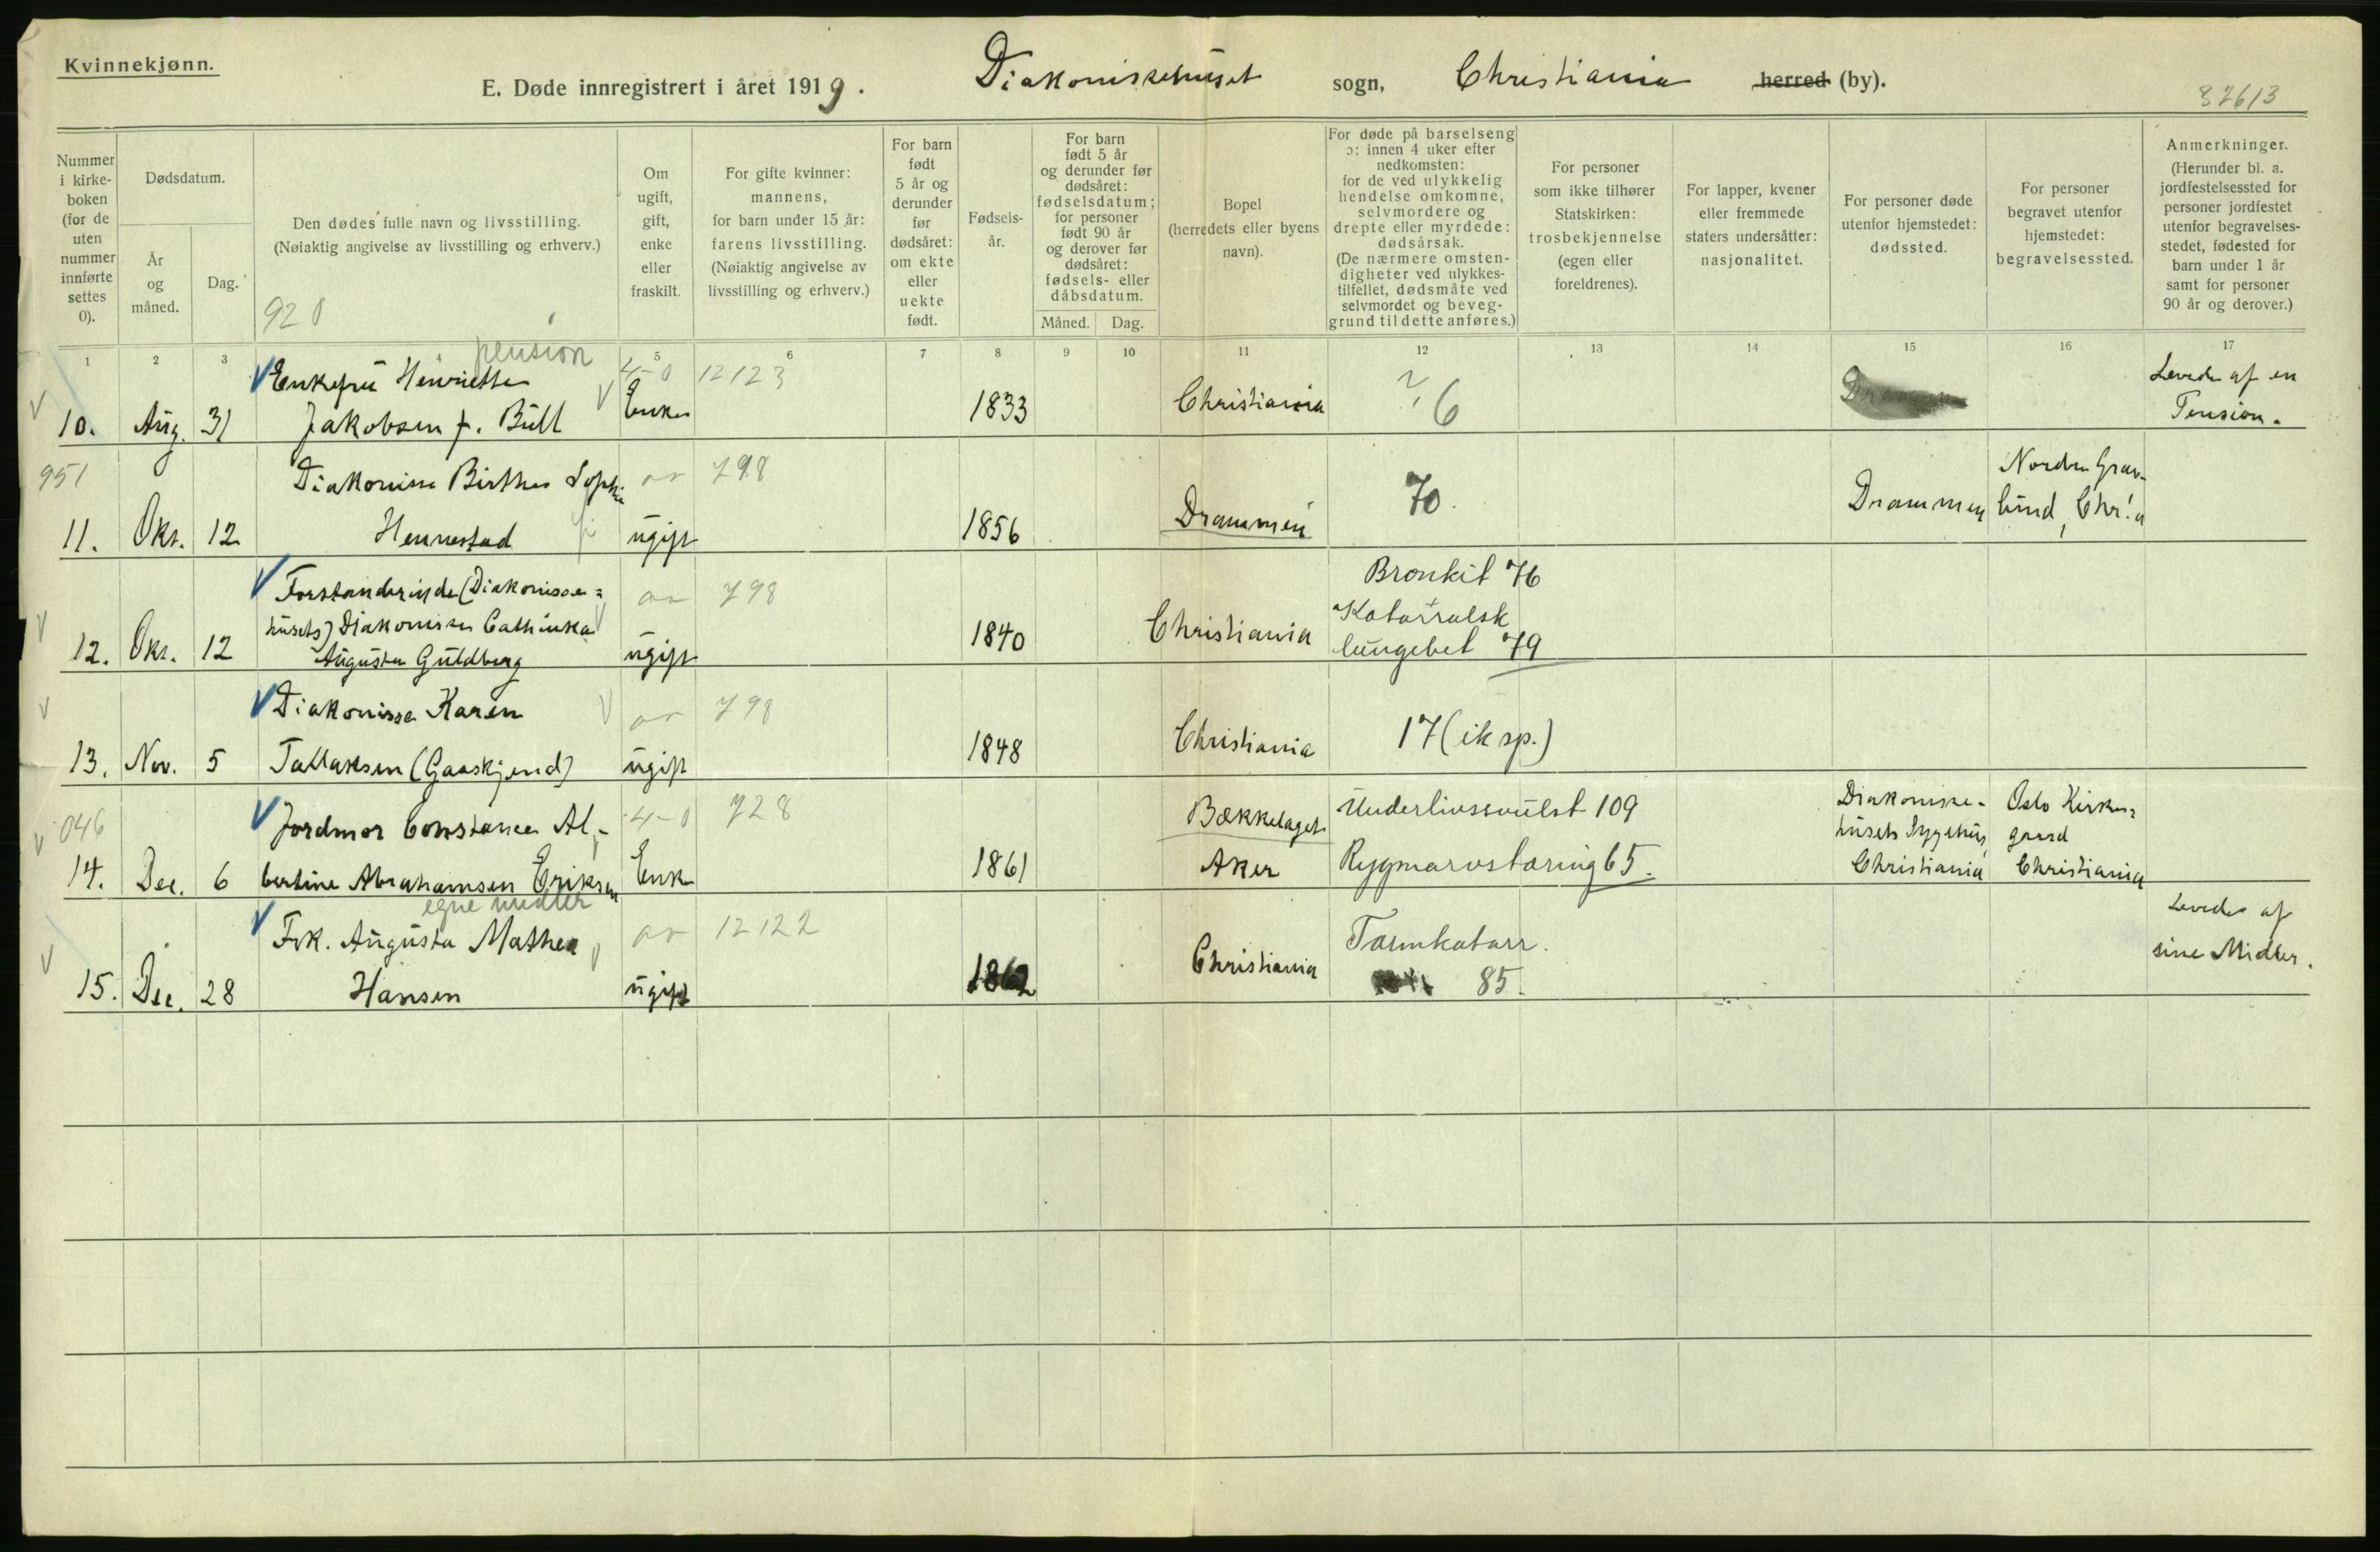 Kvinnekjønn.
E. Døde innregistrert i året 1919. Diakonissehuset sogn, Christiania herred (by).
82613
Nummer i kirke- boken (for de uten nummer innførte settes 0).
Dødsdatum.
År og måned.
Dag.
Den dødes fulle navn og livsstilling.
(Nøiaktig angivelse av livsstilling og erhverv.)
Om ugift, gift, enke eller fraskilt.
For gifte kvinner: mannens, for barn under 15 år: farens livsstilling. (Nøiaktig angivelse av livsstilling og erhverv.)
For barn født 5 år og derunder før dødsåret: om ekte eller uekte født.
Fødsels- år.
For barn født 5 år og derunder før dødsåret: fødselsdatum; for personer født 90 år og derover før dødsåret: fødsels- eller dåbsdatum.
Måned. Dag.
Bopel (herredets eller byens navn).
For døde på barselseng ɔ: innen 4 uker efter nedkomsten: for de ved ulykkelig hendelse omkomne, selvmordere og drepte eller myrdede: dødsårsak. (De nærmere omsten- digheter ved ulykkes- tilfellet, dødsmåte ved selvmordet og beveg- grund til dette anføres.)
For personer som ikke tilhører Statskirken: trosbekjennelse (egen eller foreldrenes).
For lapper, kvener eller fremmede staters undersåtter: nasjonalitet.
For personer døde utenfor hjemstedet: dødssted.
For personer begravet utenfor hjemstedet: begravelsessted.
Anmerkninger. (Herunder bl. a. jordfestelsessted for personer jordfestet utenfor begravelses- stedet, fødested for barn under 1 år samt for personer 90 år og derover.)
920
1 2 3 4 5 6 7 8 9 10 11 12 13 14 15 16 17
pension
4-0 12123
Enkefru Henriette
10. Aug. 31 Jakobsen f. Bull Enke 1833 Christiania ? 6 Drammen Levede af en
Pension.
951
Diakonisse Birthe Sophie 798
11. Okt. 12 Hennestad ugift 1856 Drammen 70. Drammen Nordre Grav-
lund, Chr.a
Forstanderinde (Diakonisse= 798
husets) Diakonisse Cathinka
12. Okt. 12 Augusta Guldberg ugift 1840 Christiania Bronkit 76
Katarralsk
lungebet 79
Diakonisse Karen 798
13. Nov. 5 Tallaksen (Gaaskjend) ugift 1848 Christiania 17 (ik sp.)
046
Jordmor Constance Al- 4-0 728
14. Dec. 6 bertine Abrahamsen Eriksen Enke 1861 Bækkelaget
Aker Underlivssvulst 109
Rygmarvstæring 65. Diakonisse-
husets Sygehus
Christiania Oslo Kirke=
gaard
Christiania
egne midler
Frk. Augusta Mathea 12122
15. Dec. 28 Hansen ugift 1862 Christiania Tarmkatarr.
85. Levede af
sine Midler.